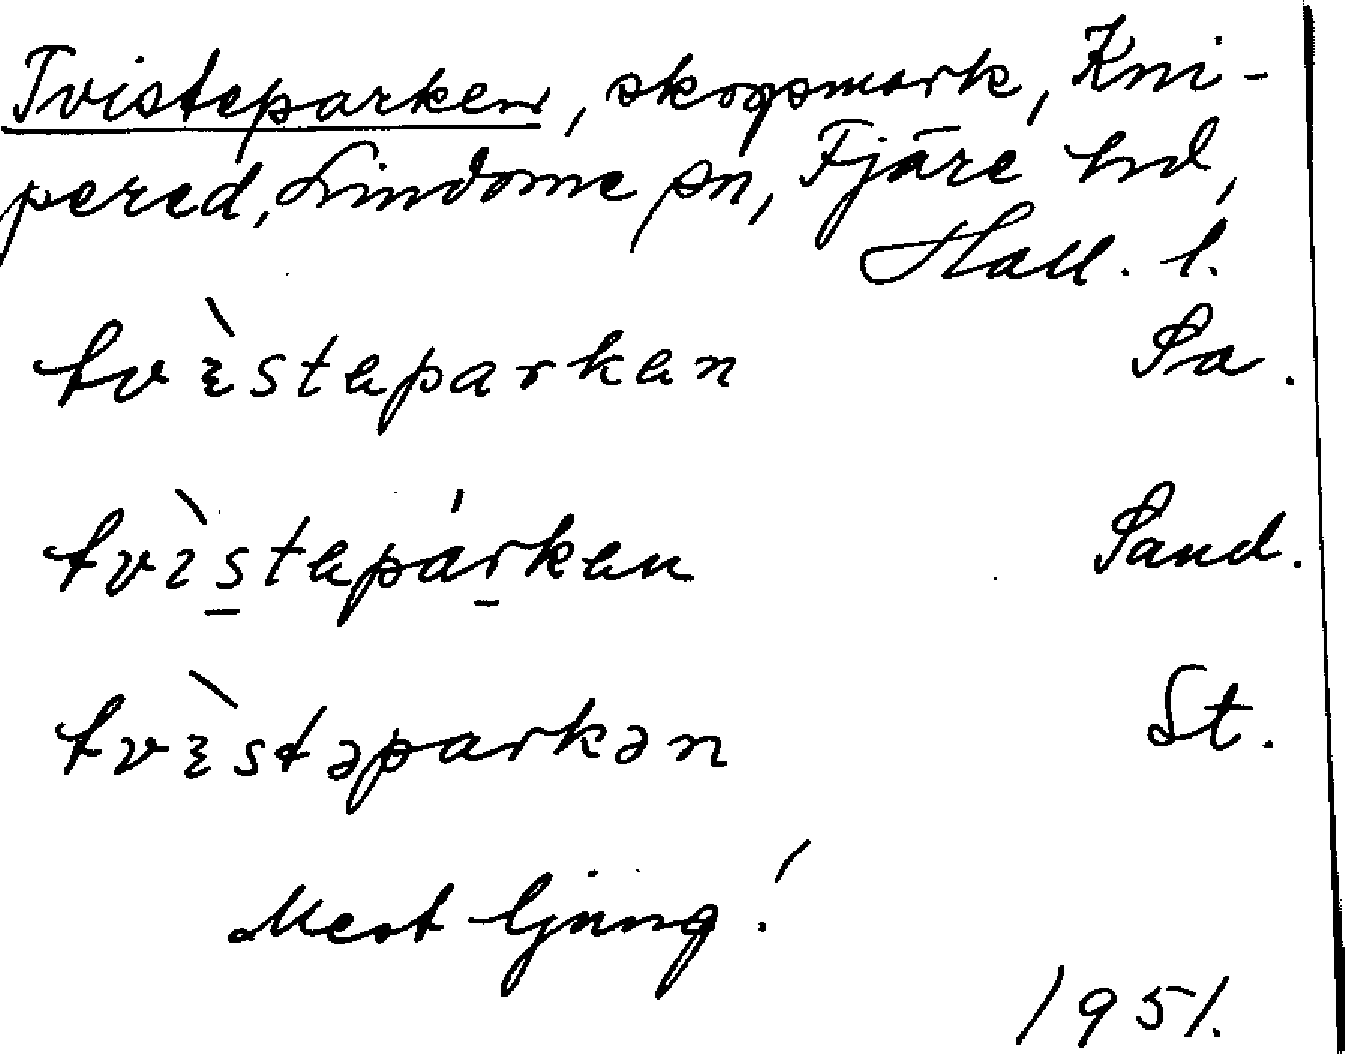 Tvisteparken, skogsmark, Kni-
pered, Lindome sn, Fjäre hd,
Hall. l.
tvìsteparken Sa.
tvìstepárken Sand.
tvìstəparkən St.
Mest ljung!
1951.